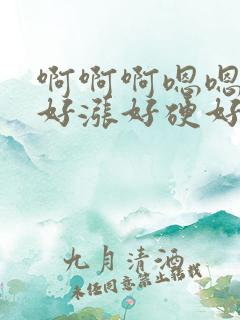 啊啊啊嗯嗯
好涨好硬好
九月清酒
未经同意禁止转载